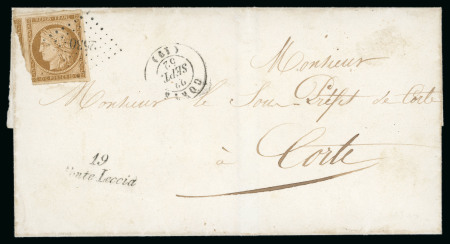 CORTE
22
SEPT.
52
(19)
Monsieur
Monsieur le Sous-Préfet de Corte
à
Corte
19
Ponte Leccia